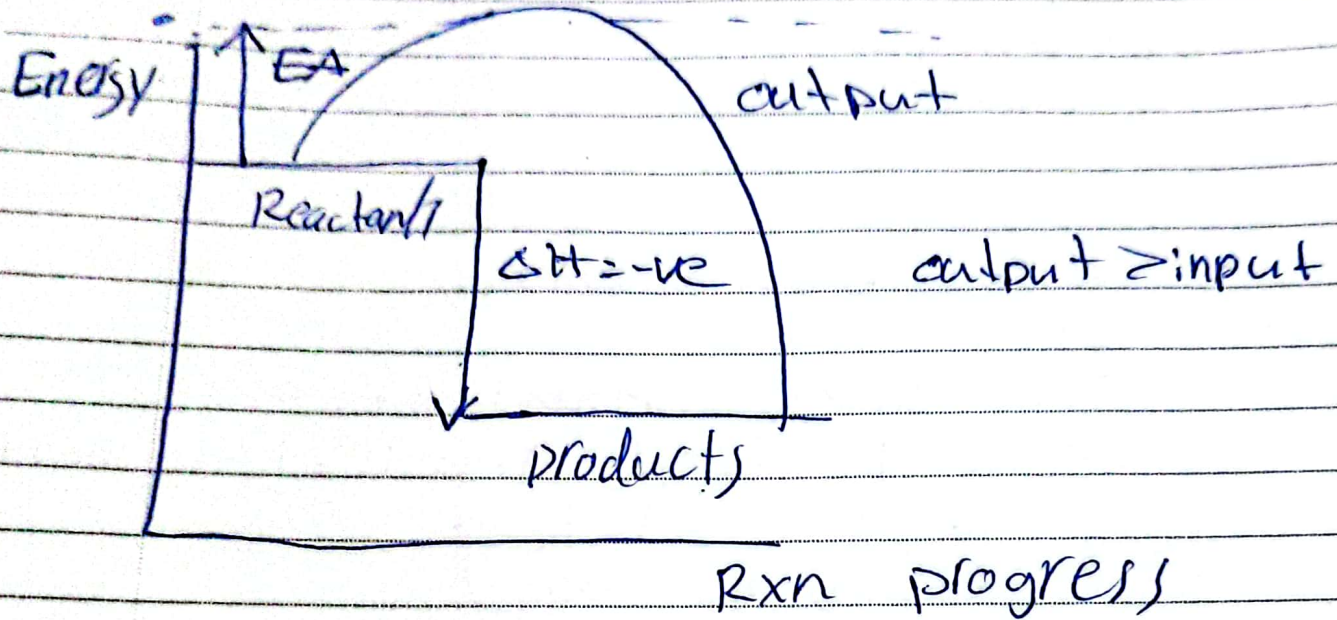 Energy
EA
output
Reactants
ΔH=-ve
output >input
products
Rxn progress